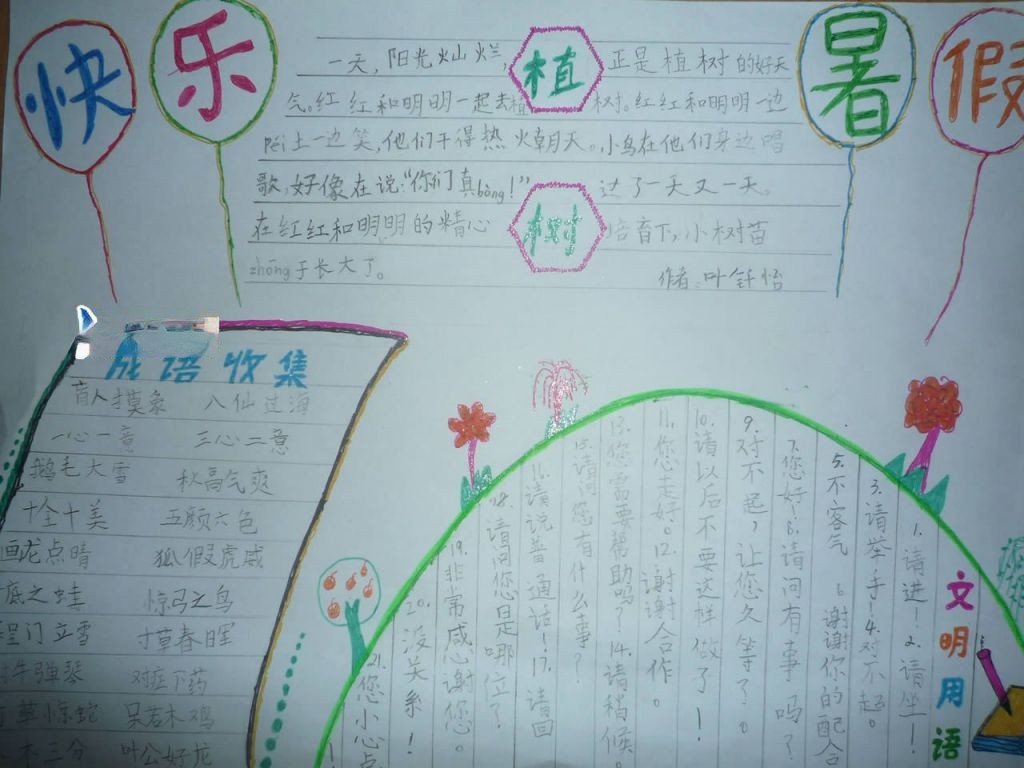 快乐
暑假
植
树
一天,阳光灿烂,正是植树的好天
气。红红和明明一起去植树。红红和明明一边
péi土一边笑,他们干得热火朝天。小鸟在他们身边唱
歌,好像在说:“你们真bàng!”过了一天又一天。
在红红和明明的精心培育下,小树苗
zhōng于长大了。
作者:叶
成语收集
盲人摸象 八仙过海
一心一意 三心二意
鹅毛大雪 秋高气爽
十全十美 五颜六色
画龙点睛 狐假虎威
底之蛙 惊弓之鸟
程门立雪 寸草春晖
牛弹琴 对症下药
草惊蛇 呆若木鸡
木三分 叶公好龙
文明用语
1.请进!2.请坐!
3.请举手!4.对不起。
5.不客气 6.谢谢你的配合
7.您好!8.请问有事吗?
9.对不起,让您久等了。
10.请以后不要这样做了!
11.您走好。12.谢谢合作。
13.您需要帮助吗?14.请稍候。
15.请问您有什么事?
16.请说普通话!17.请回
18.请问您是哪位?
19.非常感谢您。
20.没关系!
21.您小心点
!